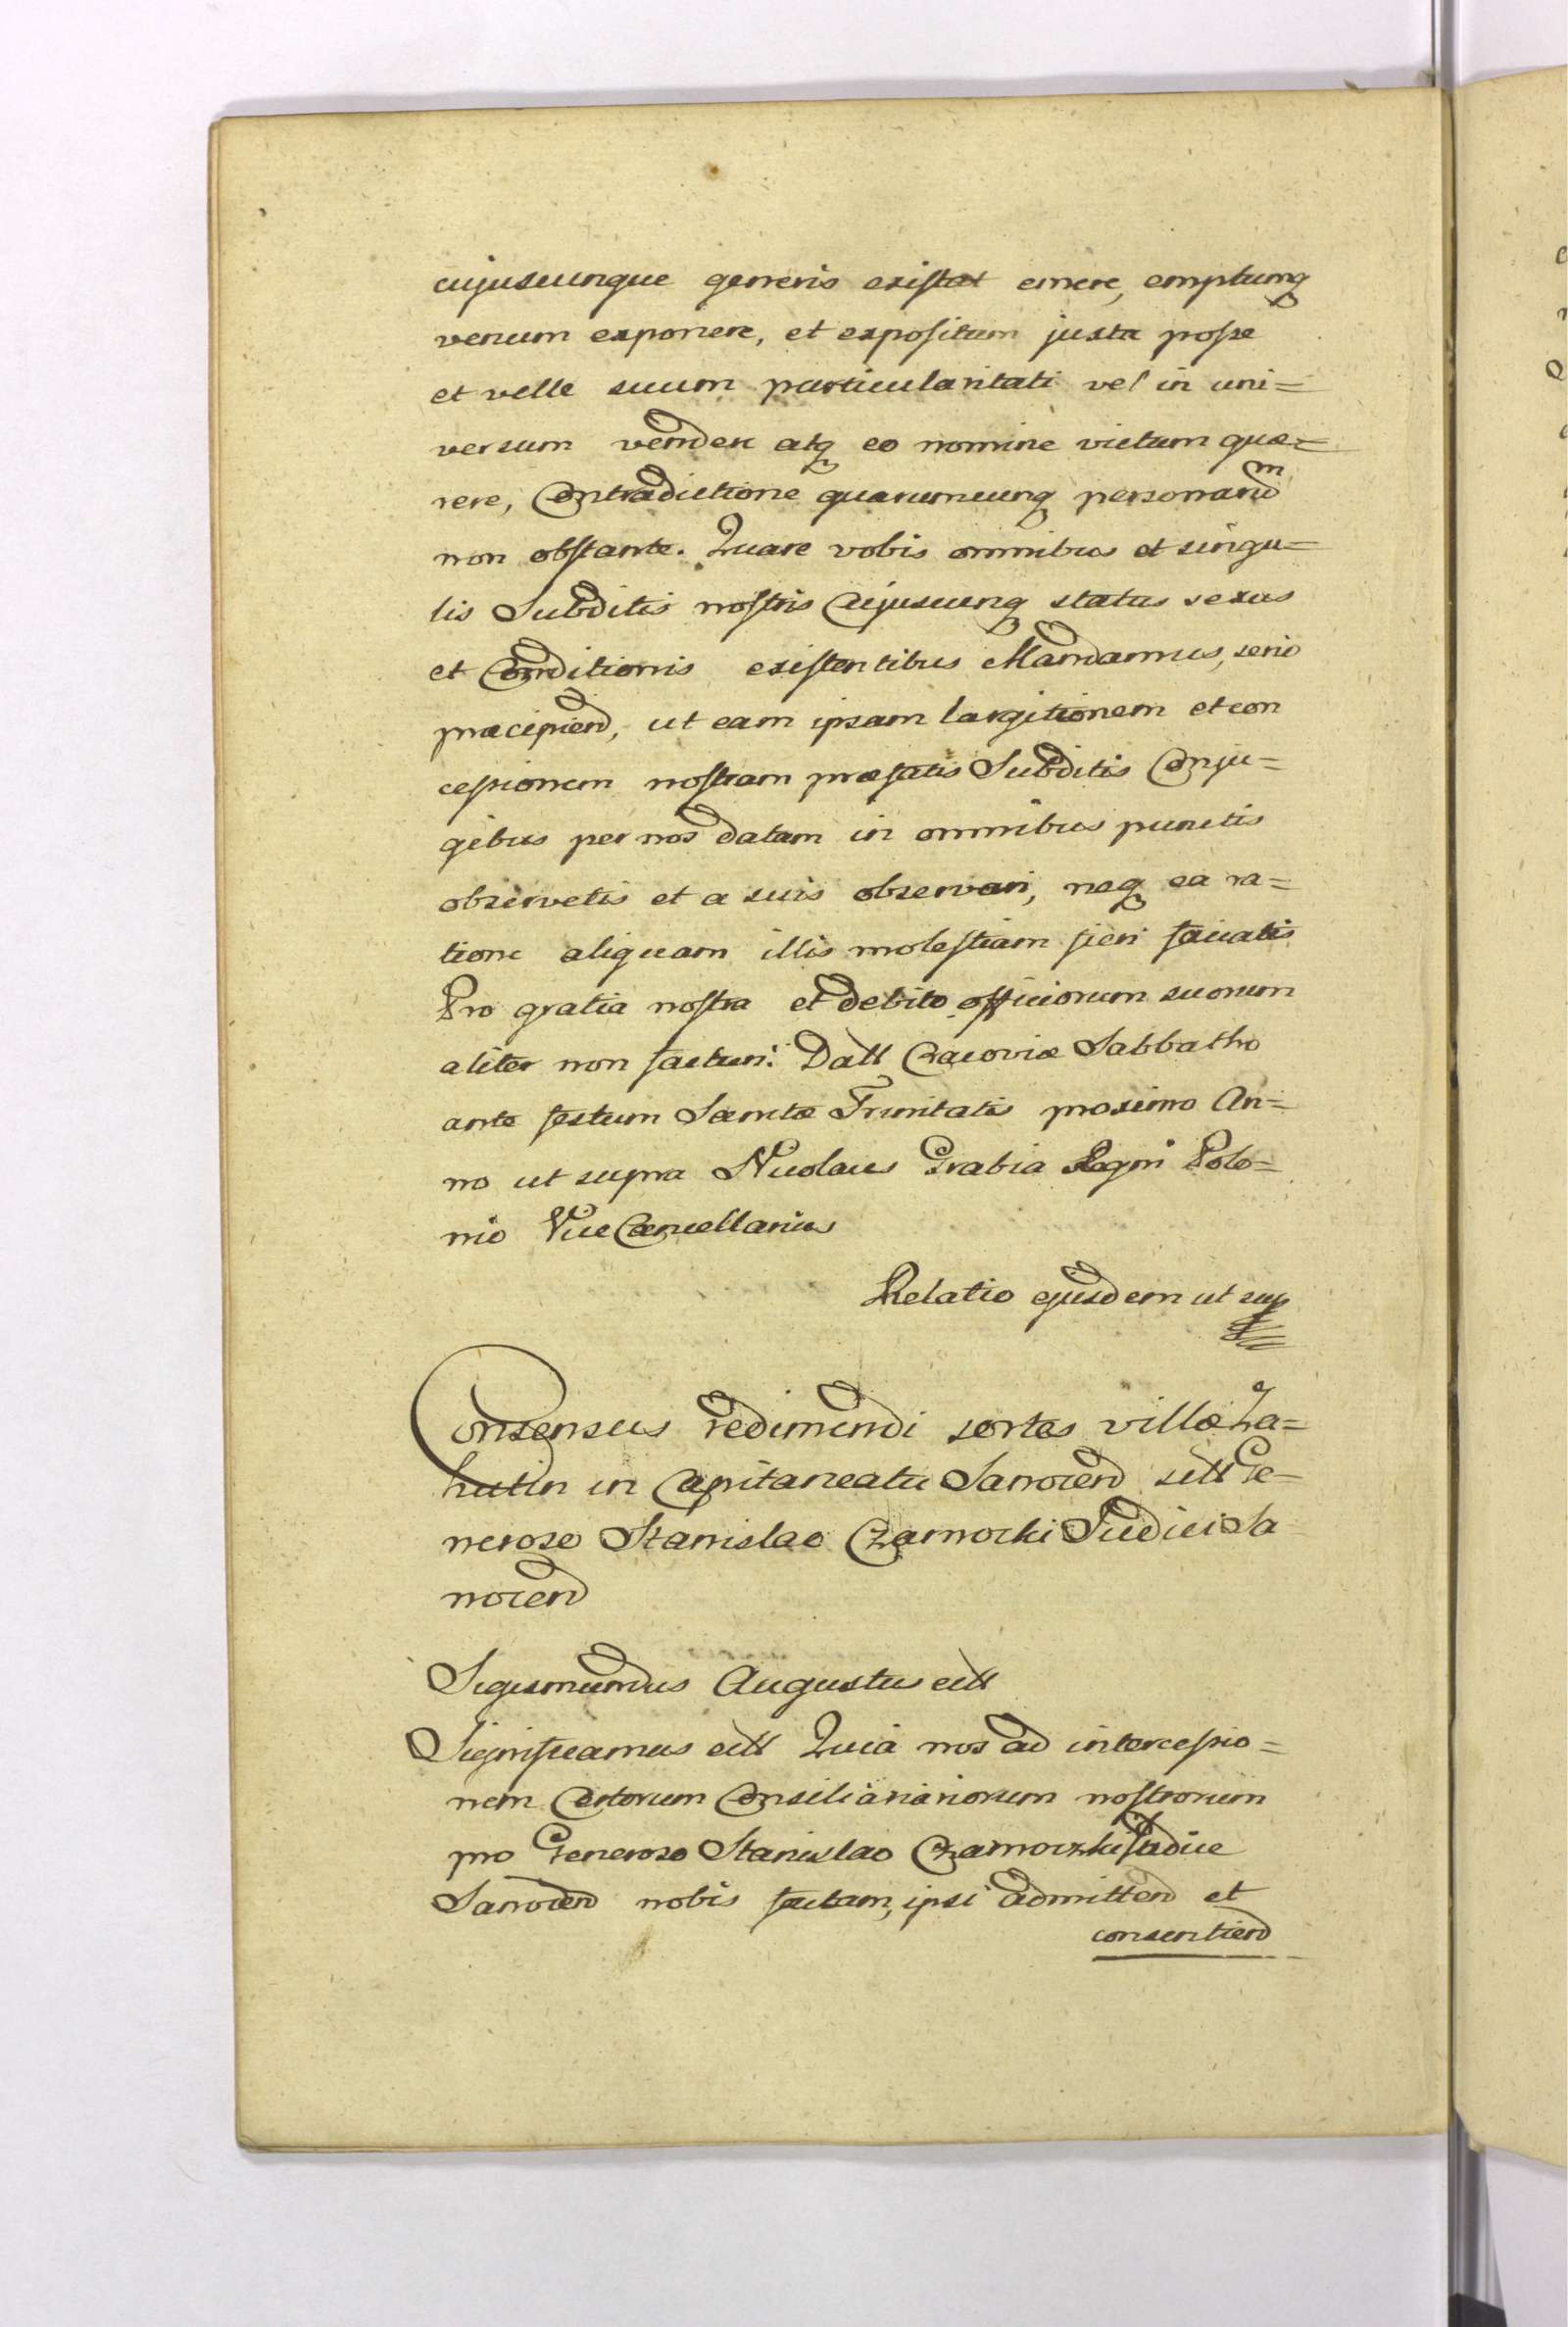 cujuscunque generis existat emere, emptumq
venum exponere, et expositum juxta posse
et velle suum particularitati vel in uni=
versum vendere atq eo nomine victum quæ=
rere, Contradictione quarumcunq personarum
non obstante. Quare vobis omnibus et singu=
lis Subditis nostris Cujuscunq status sexus
et Conditionis existentibus Mandamus, serio
præcipiend, ut eam ipsam largitionem et con
cessionem nostram præfatis Subditis Conju=
gibus per nos datam in omnibus punctis
observetis et a suis observari, neq ea ra=
tione aliquam illis molestiam fieri faciatis
Pro gratia nostra et debito officiorum suorum
aliter non facturi. Datt Cracoviæ Sabbatho
ante festum Sanctæ Trinitatis proximo An=
no ut supra Nicolaus Grabia Regni Polo=
niæ Vice Cancellarius
Relatio ejusdem ut sup
Consensus redimendi sortes villæ Za=
hutin in Capitaneatu Sanocen sitt Ge=
neroso Stanislao Czarnocki Judici Sa
nocen
Sigismundus Augustus ett
Significamus ett Quia nos ad intercessio=
nem Certorum Consiliariariorum nostrorum
pro Generoso Stanislao Czarnoczki Judice
Sanocen nobis factam, ipsi admittend et
consentiend